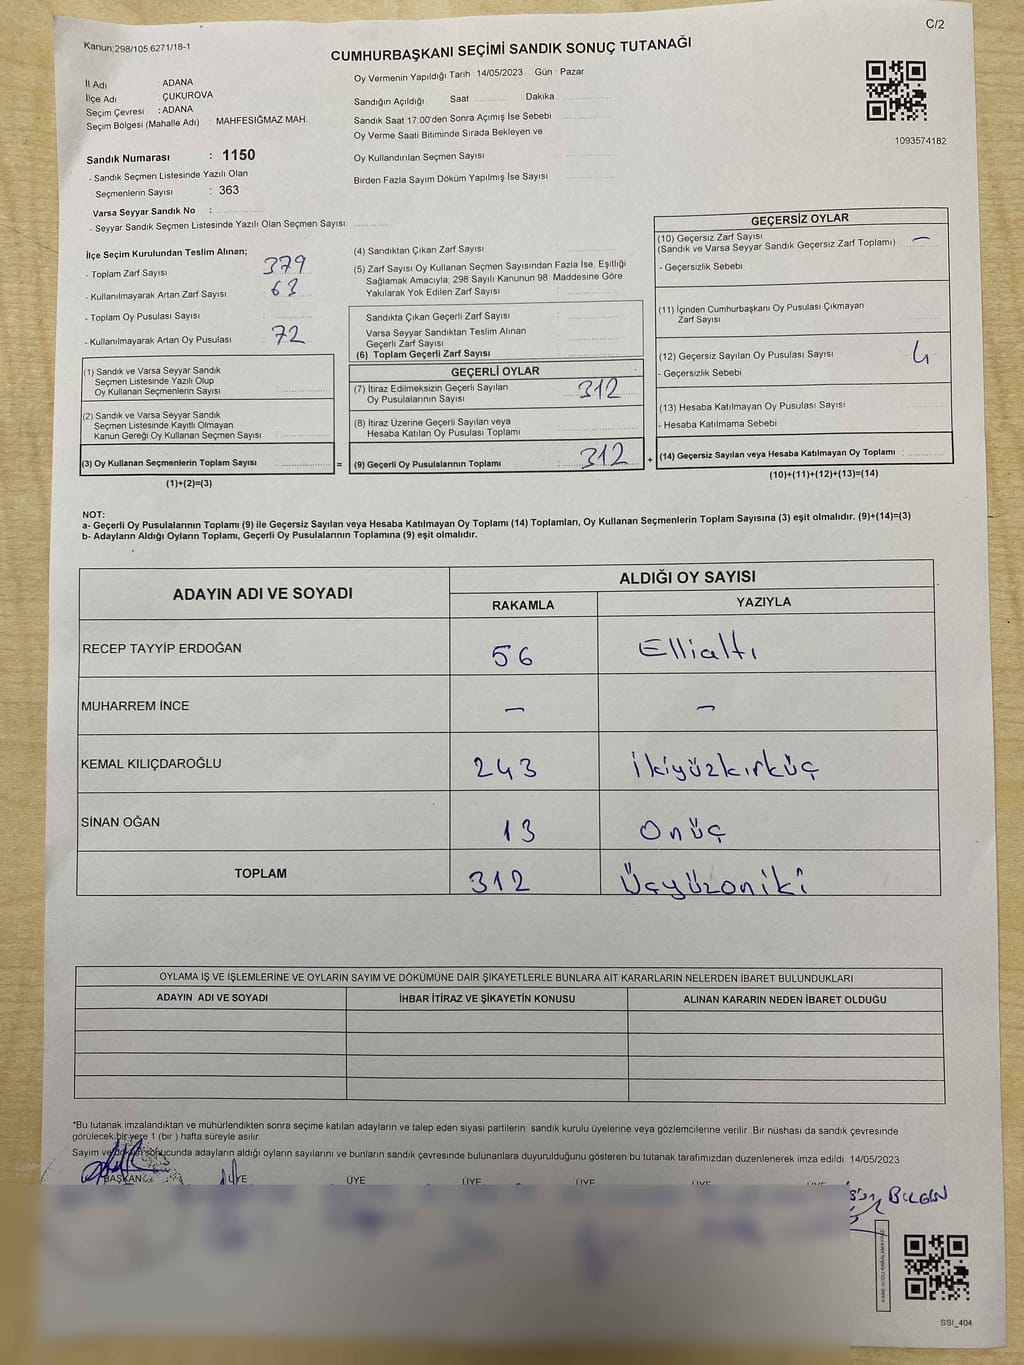 C/2
Kanun:298/105.6271/18-1
CUMHURBAŞKANI SEÇİMİ SANDIK SONUÇ TUTANAĞI
İl Adı ADANA
İlçe Adı ÇUKUROVA
Seçim Çevresi : ADANA
Seçim Bölgesi (Mahalle Adı) : MAHFESIĞMAZ MAH.
Oy Vermenin Yapıldığı Tarih 14/05/2023 Gün : Pazar
Sandığın Açıldığı Saat Dakika
Sandık Saat 17:00'den Sonra Açımış İse Sebebi
Oy Verme Saati Bitiminde Sırada Bekleyen ve
Oy Kullandırılan Seçmen Sayısı
Birden Fazla Sayım Döküm Yapılmış İse Sayısı
1093574182
Sandık Numarası : 1150
- Sandık Seçmen Listesinde Yazılı Olan
Seçmenlerin Sayısı : 363
Varsa Seyyar Sandık No :
- Seyyar Sandık Seçmen Listesinde Yazılı Olan Seçmen Sayısı:
İlçe Seçim Kurulundan Teslim Alınan;
- Toplam Zarf Sayısı : 379
- Kullanılmayarak Artan Zarf Sayısı : 63
- Toplam Oy Pusulası Sayısı :
- Kullanılmayarak Artan Oy Pusulası : 72
(1) Sandık ve Varsa Seyyar Sandık
Seçmen Listesinde Yazılı Olup
Oy Kullanan Seçmenlerin Sayısı :
(2) Sandık ve Varsa Seyyar Sandık
Seçmen Listesinde Kayıtlı Olmayan
Kanun Gereği Oy Kullanan Seçmen Sayısı :
(3) Oy Kullanan Seçmenlerin Toplam Sayısı :
(1)+(2)=(3)
(4) Sandıktan Çıkan Zarf Sayısı :
(5) Zarf Sayısı Oy Kullanan Seçmen Sayısından Fazla İse, Eşitliği
Sağlamak Amacıyla, 298 Sayılı Kanunun 98. Maddesine Göre
Yakılarak Yok Edilen Zarf Sayısı :
Sandıkta Çıkan Geçerli Zarf Sayısı :
Varsa Seyyar Sandıktan Teslim Alınan
Geçerli Zarf Sayısı :
(6) Toplam Geçerli Zarf Sayısı :
GEÇERLİ OYLAR
(7) İtiraz Edilmeksizin Geçerli Sayılan
Oy Pusulalarının Sayısı : 312
(8) İtiraz Üzerine Geçerli Sayılan veya
Hesaba Katılan Oy Pusulası Toplamı :
= (9) Geçerli Oy Pusulalarının Toplamı : 312 +
GEÇERSİZ OYLAR
(10) Geçersiz Zarf Sayısı
(Sandık ve Varsa Seyyar Sandık Geçersiz Zarf Toplamı) : –
- Geçersizlik Sebebi
(11) İçinden Cumhurbaşkanı Oy Pusulası Çıkmayan
Zarf Sayısı
(12) Geçersiz Sayılan Oy Pusulası Sayısı : 4
- Geçersizlik Sebebi
(13) Hesaba Katılmayan Oy Pusulası Sayısı :
- Hesaba Katılmama Sebebi
(14) Geçersiz Sayılan veya Hesaba Katılmayan Oy Toplamı :
(10)+(11)+(12)+(13)=(14)
NOT:
a- Geçerli Oy Pusulalarının Toplamı (9) ile Geçersiz Sayılan veya Hesaba Katılmayan Oy Toplamı (14) Toplamları, Oy Kullanan Seçmenlerin Toplam Sayısına (3) eşit olmalıdır. (9)+(14)=(3)
b- Adayların Aldığı Oyların Toplamı, Geçerli Oy Pusulalarının Toplamına (9) eşit olmalıdır.
ADAYIN ADI VE SOYADI
ALDIĞI OY SAYISI
RAKAMLA YAZIYLA
RECEP TAYYİP ERDOĞAN 56 Ellialtı
MUHARREM İNCE – –
KEMAL KILIÇDAROĞLU 243 ikiyüzkırküç
SİNAN OĞAN 13 Onüç
TOPLAM 312 Üçyüzoniki
OYLAMA İŞ VE İŞLEMLERİNE VE OYLARIN SAYIM VE DÖKÜMÜNE DAİR ŞİKAYETLERLE BUNLARA AİT KARARLARIN NELERDEN İBARET BULUNDUKLARI
ADAYIN ADI VE SOYADI İHBAR İTİRAZ VE ŞİKAYETİN KONUSU ALINAN KARARIN NEDEN İBARET OLDUĞU
*Bu tutanak imzalandıktan ve mühürlendikten sonra seçime katılan adayların ve talep eden siyasi partilerin sandık kurulu üyelerine veya gözlemcilerine verilir. Bir nüshası da sandık çevresinde
görülecek bir yere 1 (bir) hafta süreyle asılır.
Sayım ve döküm sonucunda adayların aldığı oyların sayılarını ve bunların sandık çevresinde bulunanlara duyurulduğunu gösteren bu tutanak tarafımızdan düzenlenerek imza edildi. 14/05/2023
BAŞKAN ÜYE ÜYE ÜYE ÜYE ÜYE ÜYE
BİLGİN
SSI_404